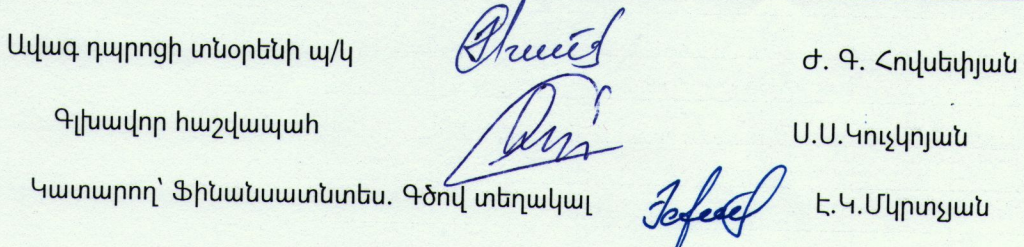 Ավագ դպրոցի տնօրենի պ/կ Ժ. Գ. Հովսեփյան
Գլխավոր հաշվապահ Ս.Ս.Կուչկոյան
Կատարող՝ Ֆինանսատնտես. Գծով տեղակալ Է.Կ.Մկրտչյան